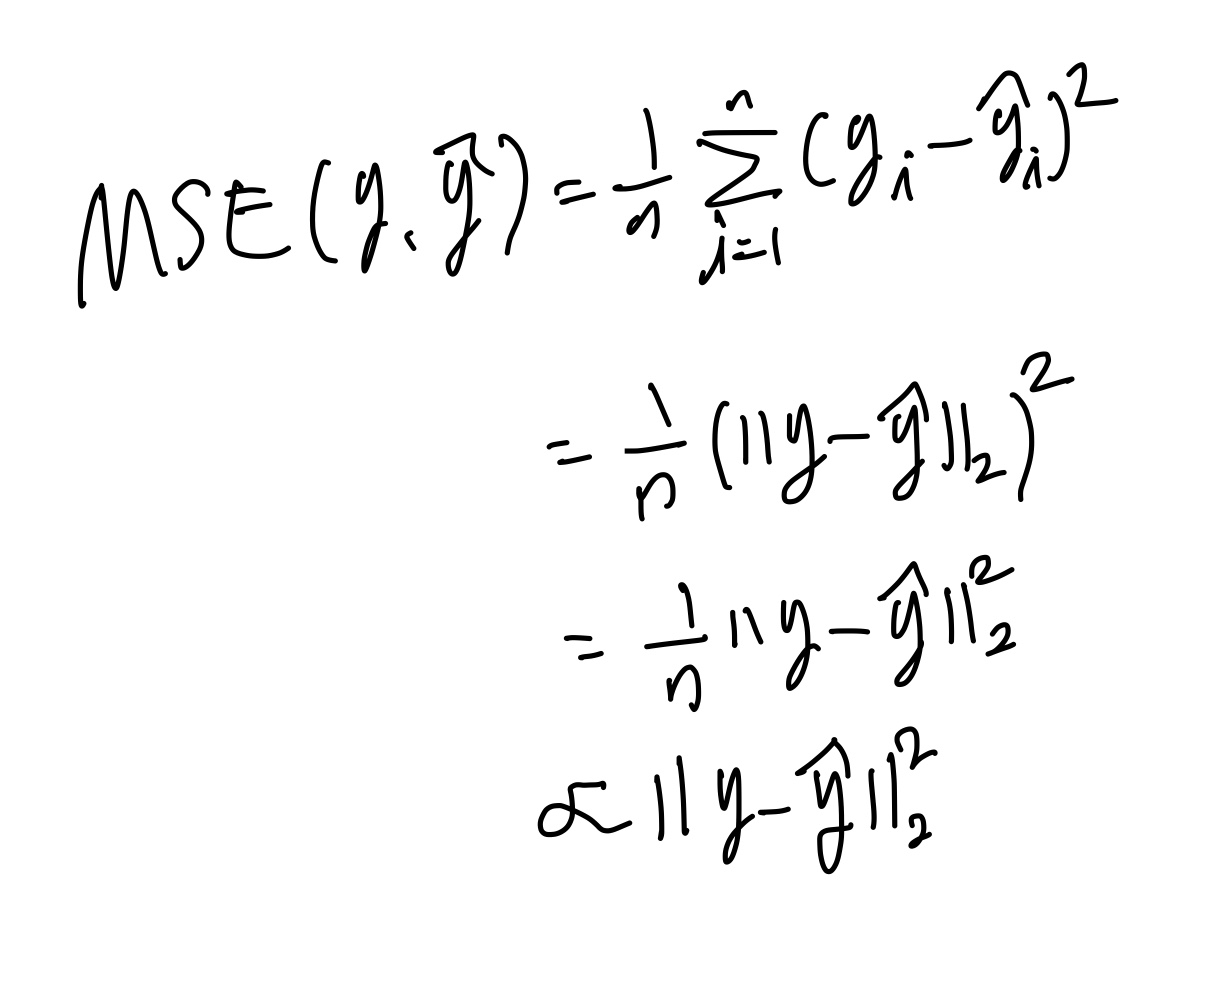 MSE(y, ŷ) = \frac{1}{n} \sum_{i=1}^{n} (y_i - ŷ_i)^2
= \frac{1}{n} (||y - ŷ||_2)^2
= \frac{1}{n} ||y - ŷ||_2^2
∝ ||y - ŷ||_2^2